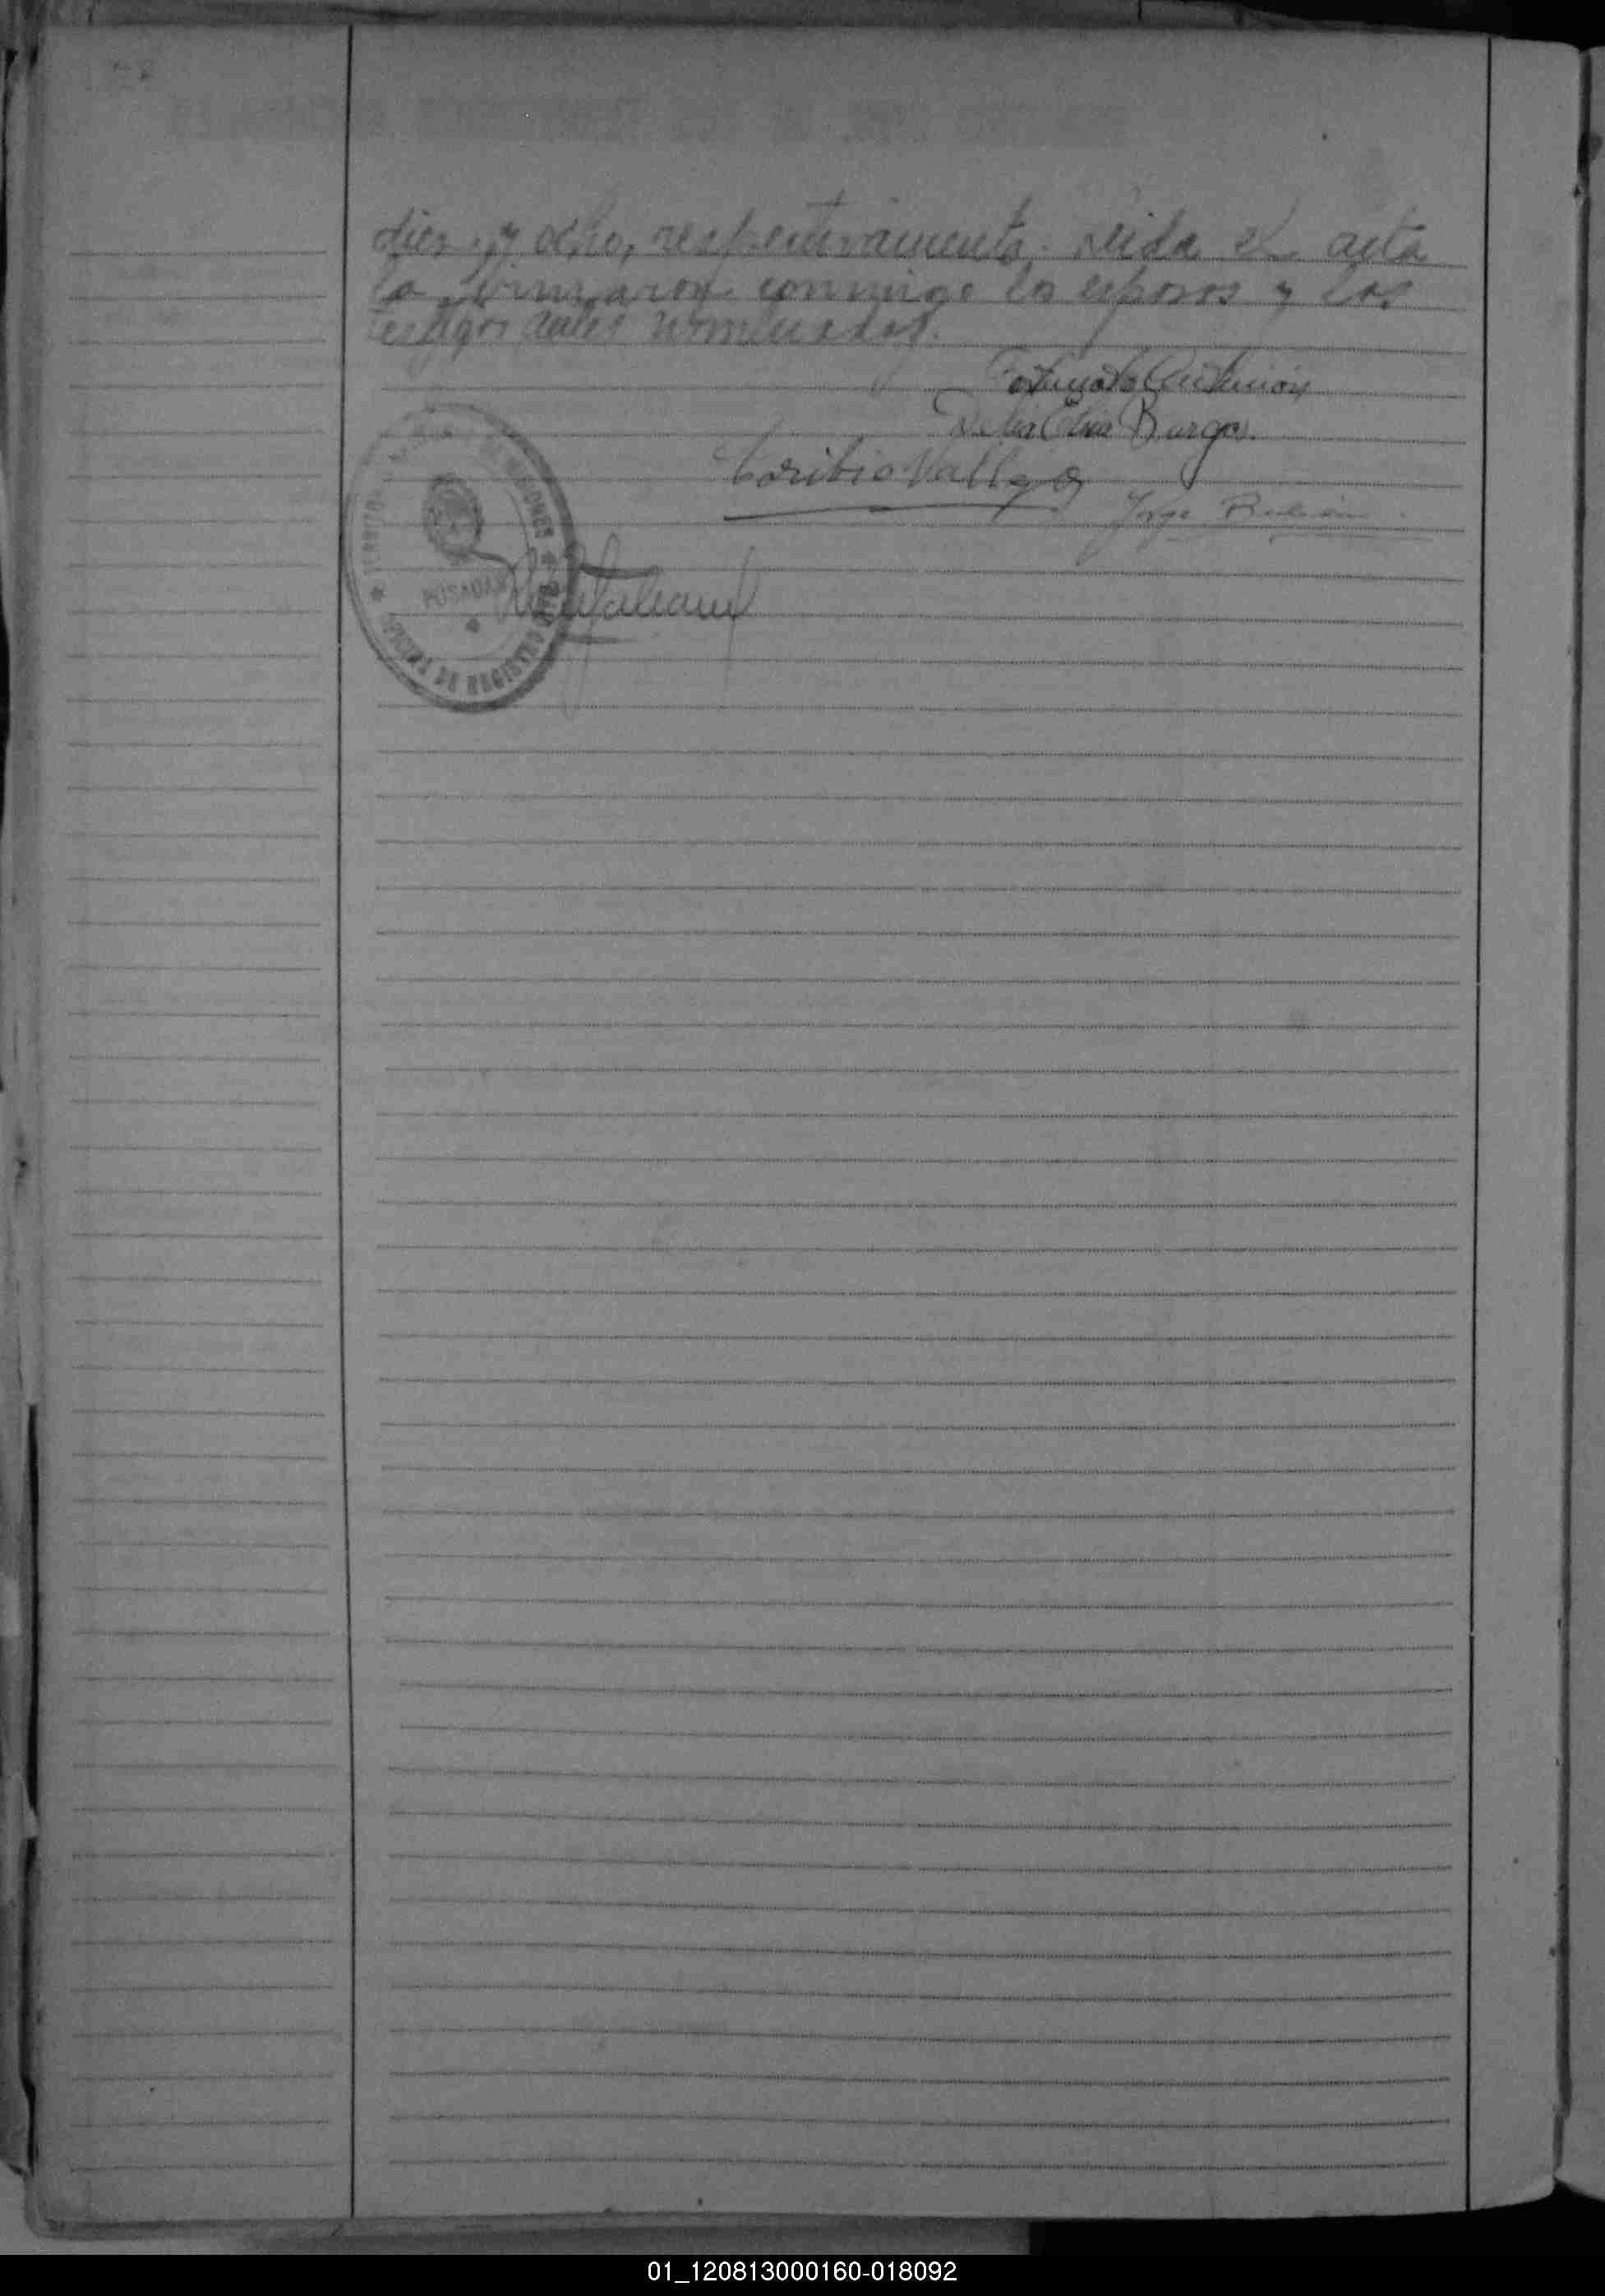 diez y ocho, respectivamente. Leida el acta
la firmaron conmigo los esposos y los
testigos antes nombrados.
Fortunato
Delia Elisa Burgos.
Toribio Vallejo
Jorge
MISIONES
POSADAS
OFICINA DE REGISTRO
01_120813000160-018092